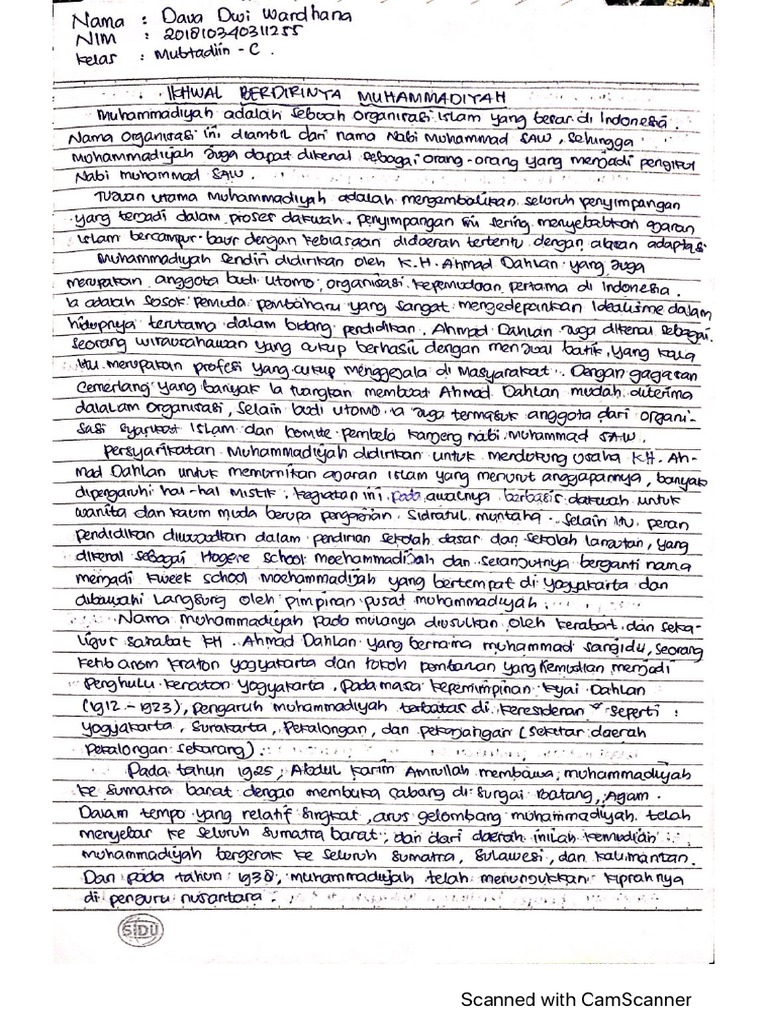 Nama : Dava Dwi Wardhana
NIM : 201810340311255
Kelas : Mubtadiin - C.
IKHWAL BERDIRINYA MUHAMMADIYAH
Muhammadiyah adalah sebuah organisasi Islam yang besar di Indonesia.
Nama organisasi ini diambil dari nama Nabi Muhammad SAW, sehingga
Muhammadiyah juga dapat dikenal sebagai orang-orang yang menjadi pengikut
Nabi Muhammad SAW.
Tujuan utama Muhammadiyah adalah mengembalikan seluruh penyimpangan
yang terjadi dalam proses dakwah. Penyimpangan ini sering menyebabkan ajaran
Islam bercampur-baur dengan kebiasaan didaerah tertentu dengan alasan adaptasi
Muhammadiyah sendiri didirikan oleh K.H. Ahmad Dahlan yang juga
merupakan anggota budi Utomo, organisasi kepemudaan pertama di Indonesia.
Ia adalah sosok pemuda pembaharu yang sangat mengedepankan Idealisme dalam
hidupnya terutama dalam bidang pendidikan. Ahmad Dahlan juga dikenal sebagai
seorang wirausahawan yang cukup berhasil dengan menjual batik, yang kala
itu merupakan profesi yang cukup menggejala di Masyarakat. Dengan gagasan
Cemerlang yang banyak Ia tuangkan membuat Ahmad Dahlan mudah diterima
dalalam organisasi, selain budi utomo ia juga termasuk anggota dari organi-
sasi Syarikat Islam dan komite Pembela Kanjeng Nabi Muhammad SAW.
Persyarikatan Muhammadiyah didirikan untuk mendukung usaha KH. Ah-
mad Dahlan untuk memurnikan ajaran Islam yang menurut anggapannya, banyak
dipengaruhi hal-hal mistik. Kegiatan ini pada awalnya berbasis dakwah untuk
wanita dan kaum muda berupa pengajian Sidratul Muntaha. Selain itu peran
pendidikan diwujudkan dalam pendirian sekolah dasar dan sekolah lanjutan, yang
dikenal sebagai Hogere School Moehammadijah dan selanjutnya berganti nama
menjadi Kweek School Moehammadijah yang bertempat di Yogyakarta dan
dibawahi Langsung oleh pimpinan pusat muhammadiyah.
Nama muhammadiyah pada mulanya diusulkan oleh kerabat dan seka-
ligus sahabat KH. Ahmad Dahlan yang bernama Muhammad Sangidu, seorang
Ketib Anom Kraton Yogyakarta dan tokoh pembaruan yang kemudian menjadi
Penghulu Keraton Yogyakarta. Pada masa kepemimpinan Kyai Dahlan
(1912 - 1923), pengaruh muhammadiyah terbatas di keresidenan seperti :
Yogyakarta, Surakarta, Pekalongan, dan pekajangan (sekitar daerah
Pekalongan sekarang).
Pada tahun 1925, Abdul Karim Amrullah membawa muhammadiyah
ke Sumatra barat dengan membuka cabang di Sungai Batang, Agam.
Dalam tempo yang relatif singkat, arus gelombang muhammadiyah telah
menyebar ke seluruh Sumatra barat, dan dari daerah inilah kemudian
muhammadiyah bergerak ke seluruh Sumatra, Sulawesi, dan Kalimantan.
Dan pada tahun 1938, muhammadiyah telah menunjukkan kiprahnya
di penjuru nusantara.
SIDU
Scanned with CamScanner